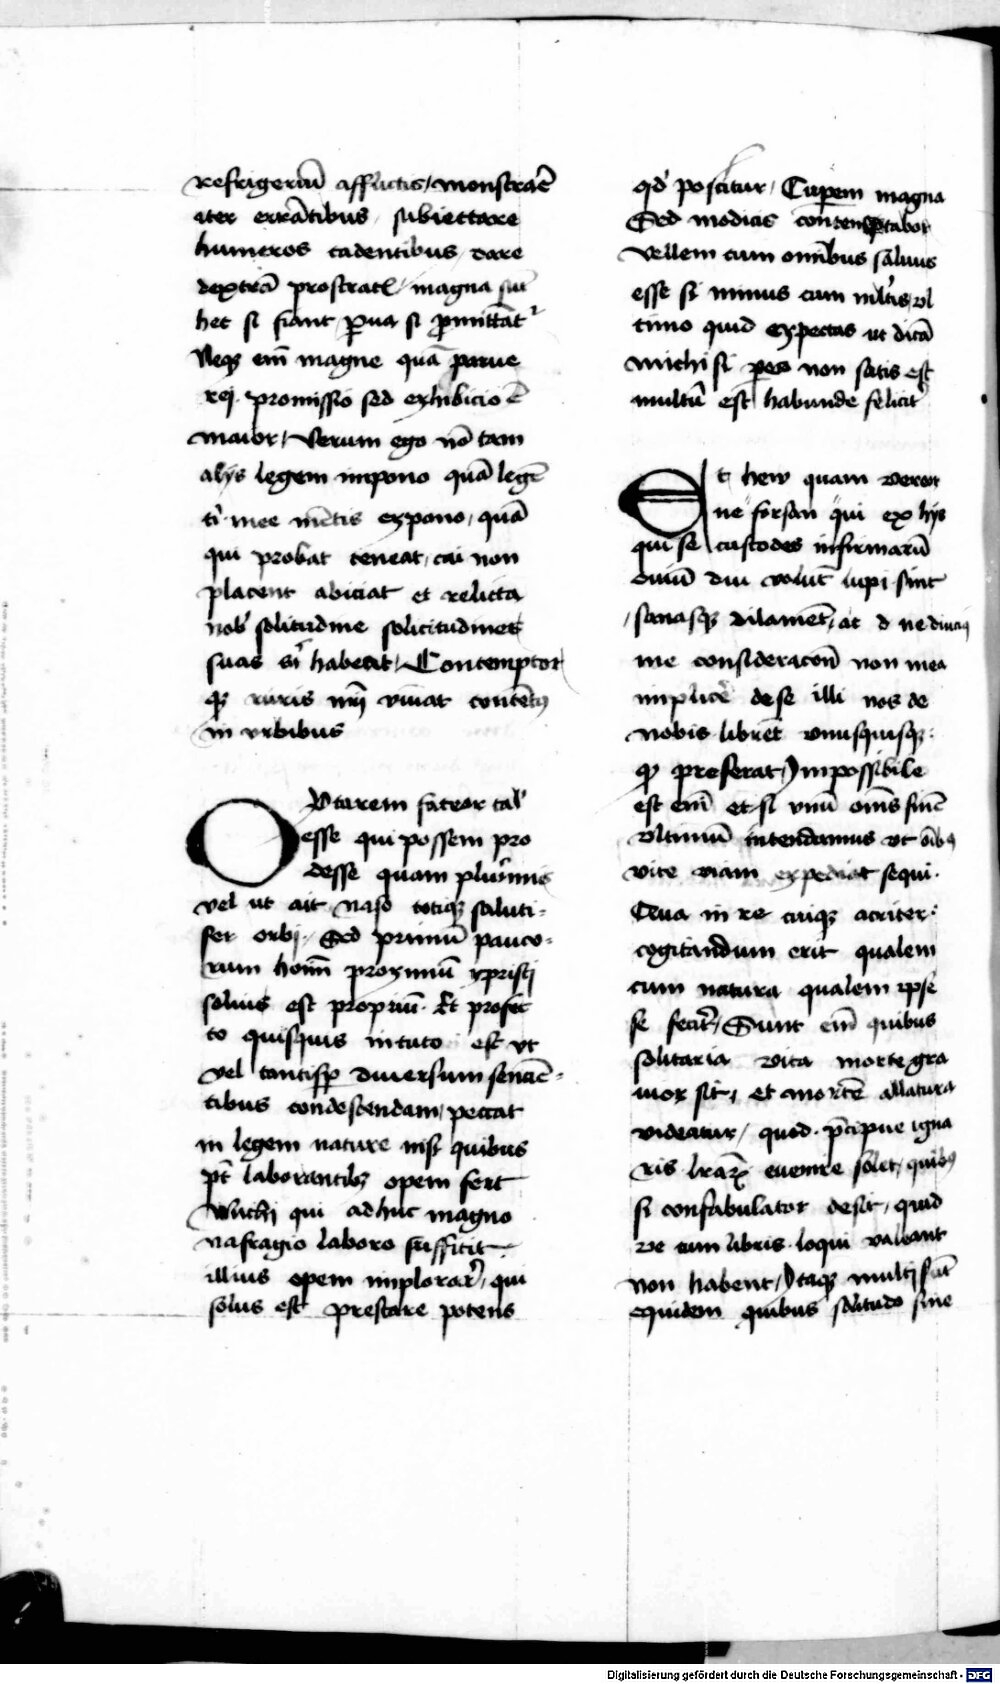 refrigeriū afflictis / monstrar̄e
iter errātibus / subiectare
humeros cadentibus / dare
dextrā prostratis / magna sūt
hec si fiant / parua si promittāt᷑
Neqꝫ em̄ magne quā parue
rei promissio sed exhibicio ē
maior / Verum ego nō tam
alijs legem impono quā legē
ti mee mētis expono / quā
qui probat teneat / cui non
placent abiciat et relicta
nob' solitudine solicitudines
suas si' habeat / Contemptor
qꝫ ruris nri viuat contētꝰ
in vrbibus
Optarem fateor tal'
esse qui possem pro
desse quam plurimis
vel ut ait naso totiqꝫ saluti=
fer orbi / Sed primū pauco=
rum hoīm proximū xpristi
solius est propriū. Et profec
to quisquis in tuto est vt
vel tantisp̄ diuersum senciē=
tibus condescendam / peccat
in legem nature nisi quibus
pt̄ laborantibꝫ opem fert
Michi qui adhuc magno
nafragio laboro sufficit
illius opem implorar̄e / qui
solus est prestare potens
qd' poscitur / Cuperem magna
Sed modicis contentabor
Vellem cum omībus saluus
esse si minus cum mltis vl
timo quid expectas ut dicā
michi si pereo non satis est
multū est habunde felicit᷑
Et heu quam vereor
ne forsan qui ex hijs
qui se custodes infirmarū
ouiū diu volūt lupi sint
sanasqꝫ dilanient / at
me consideracōn non mea
implicē de se illi nos de
nobis librēt vnusquisqꝫ
qꝫ preferat / Impossibile
est em̄ et si vnū oms finē
vltimū intendamus vt oībꝰ
vite viam expediat sequi.
Qua in re cuiqꝫ acriter
cogitandum erit qualem
cum natura qualem ipse
se fecit / Sunt em̄ quibus
solitaria vita morte gra
uior sit / et mortē allatura
videatur / quod p̄cipue igna
ris lrarꝝ euenire solet / quibꝰ
si confabulator desit / quid
ve cum libris loqui valeant
non habent / Itaqꝫ multi sūt
equidem quibus solitudo sine
Digitalisierung gefördert durch die Deutsche Forschungsgemeinschaft - DFG